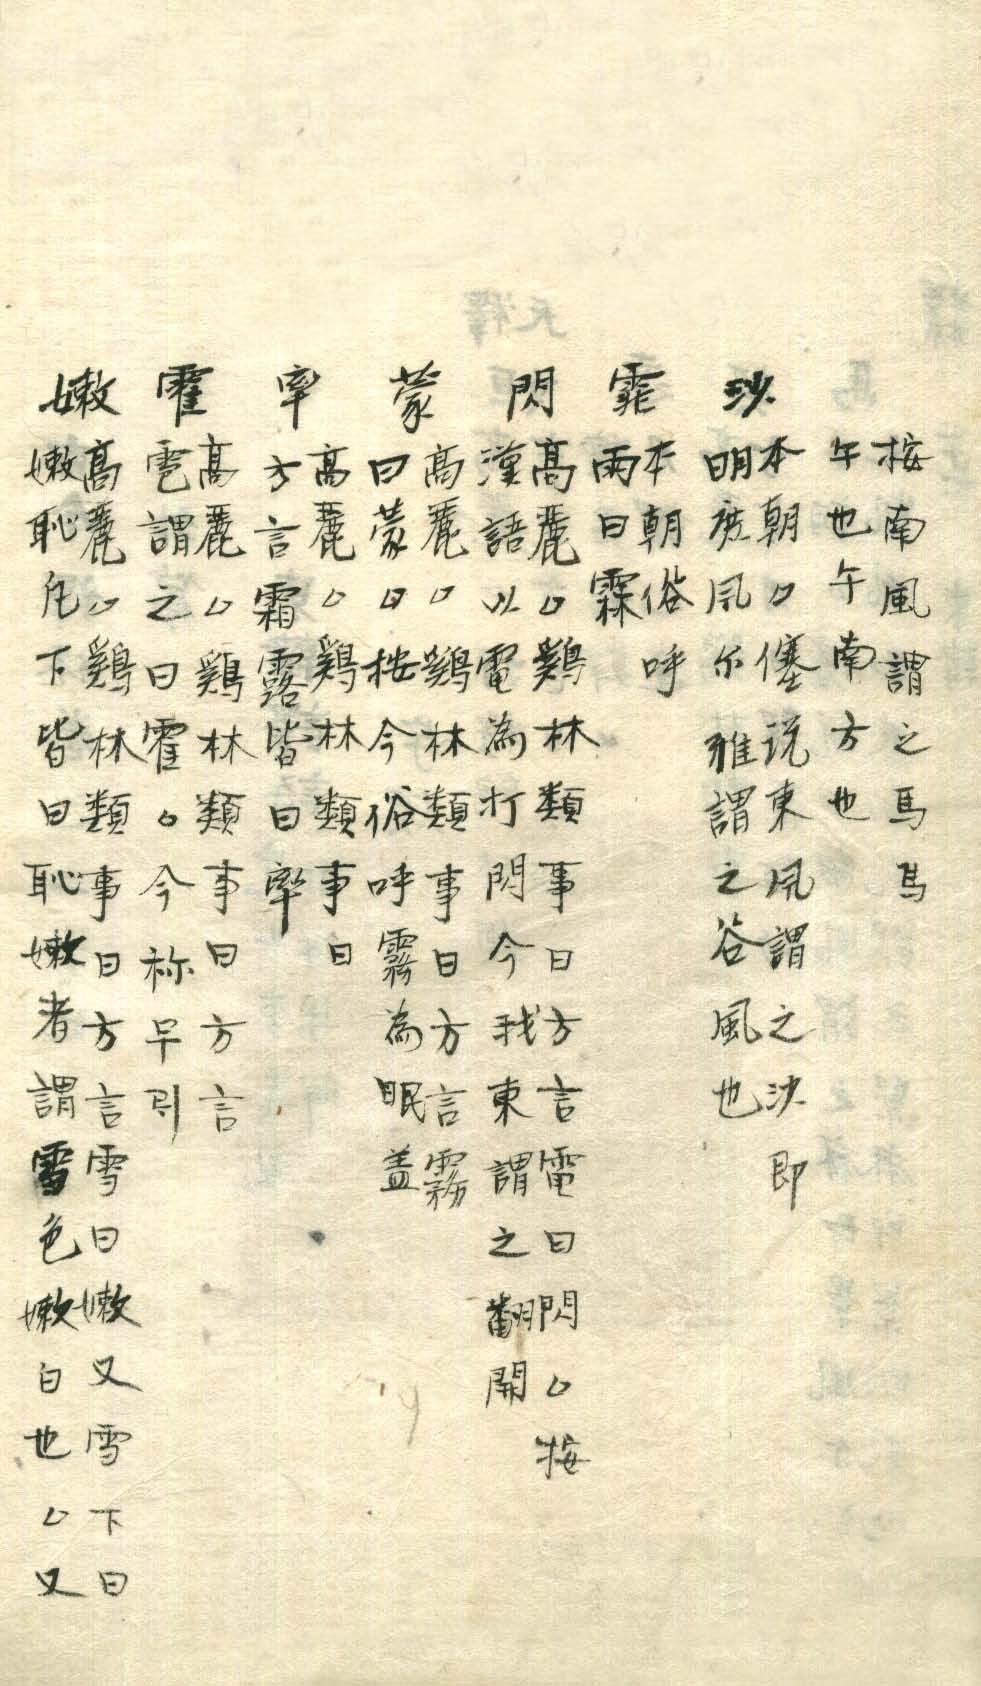 按南風謂之馬馬
午也午南方也
沙
本朝○僿说東風謂之沙即
明庶風尔雅謂之谷風也
霏
本朝俗呼
雨曰霖
閃
高麗○鷄林類事曰方言電曰閃○按
漢語以電為打閃今我東謂之翻開
蒙
高麗○鷄林類事曰方言霧
曰蒙○按今俗呼霧為眠盖
率
高麗○鷄林類事曰
方言霜露皆曰率
霍
高麗○鷄林類事曰方言
雹謂之曰霍○今称우리
嫩
高麗○鷄林類事曰方言雪曰嫩又雪下曰
嫩恥凡下皆曰恥嫩者謂雪色嫩白也○又